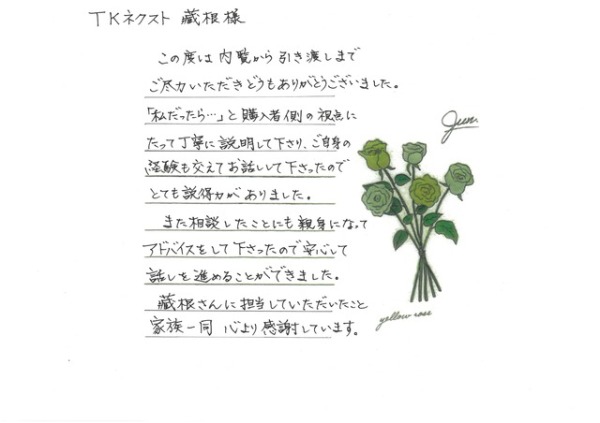 TKネクスト 藏根様
この度は内覧から引き渡しまで
ご尽力いただきどうもありがとうございました。
「私だったら…」と購入者側の視点に
たって丁寧に説明して下さり、ご自身の
経験も交えてお話しして下さったので
とても説得力がありました。
また相談したことにも親身になって
アドバイスをして下さったので安心して
話しを進めることができました。
藏根さんに担当していただいたこと
家族一同 心より感謝しています。
Jun.
yellow rose